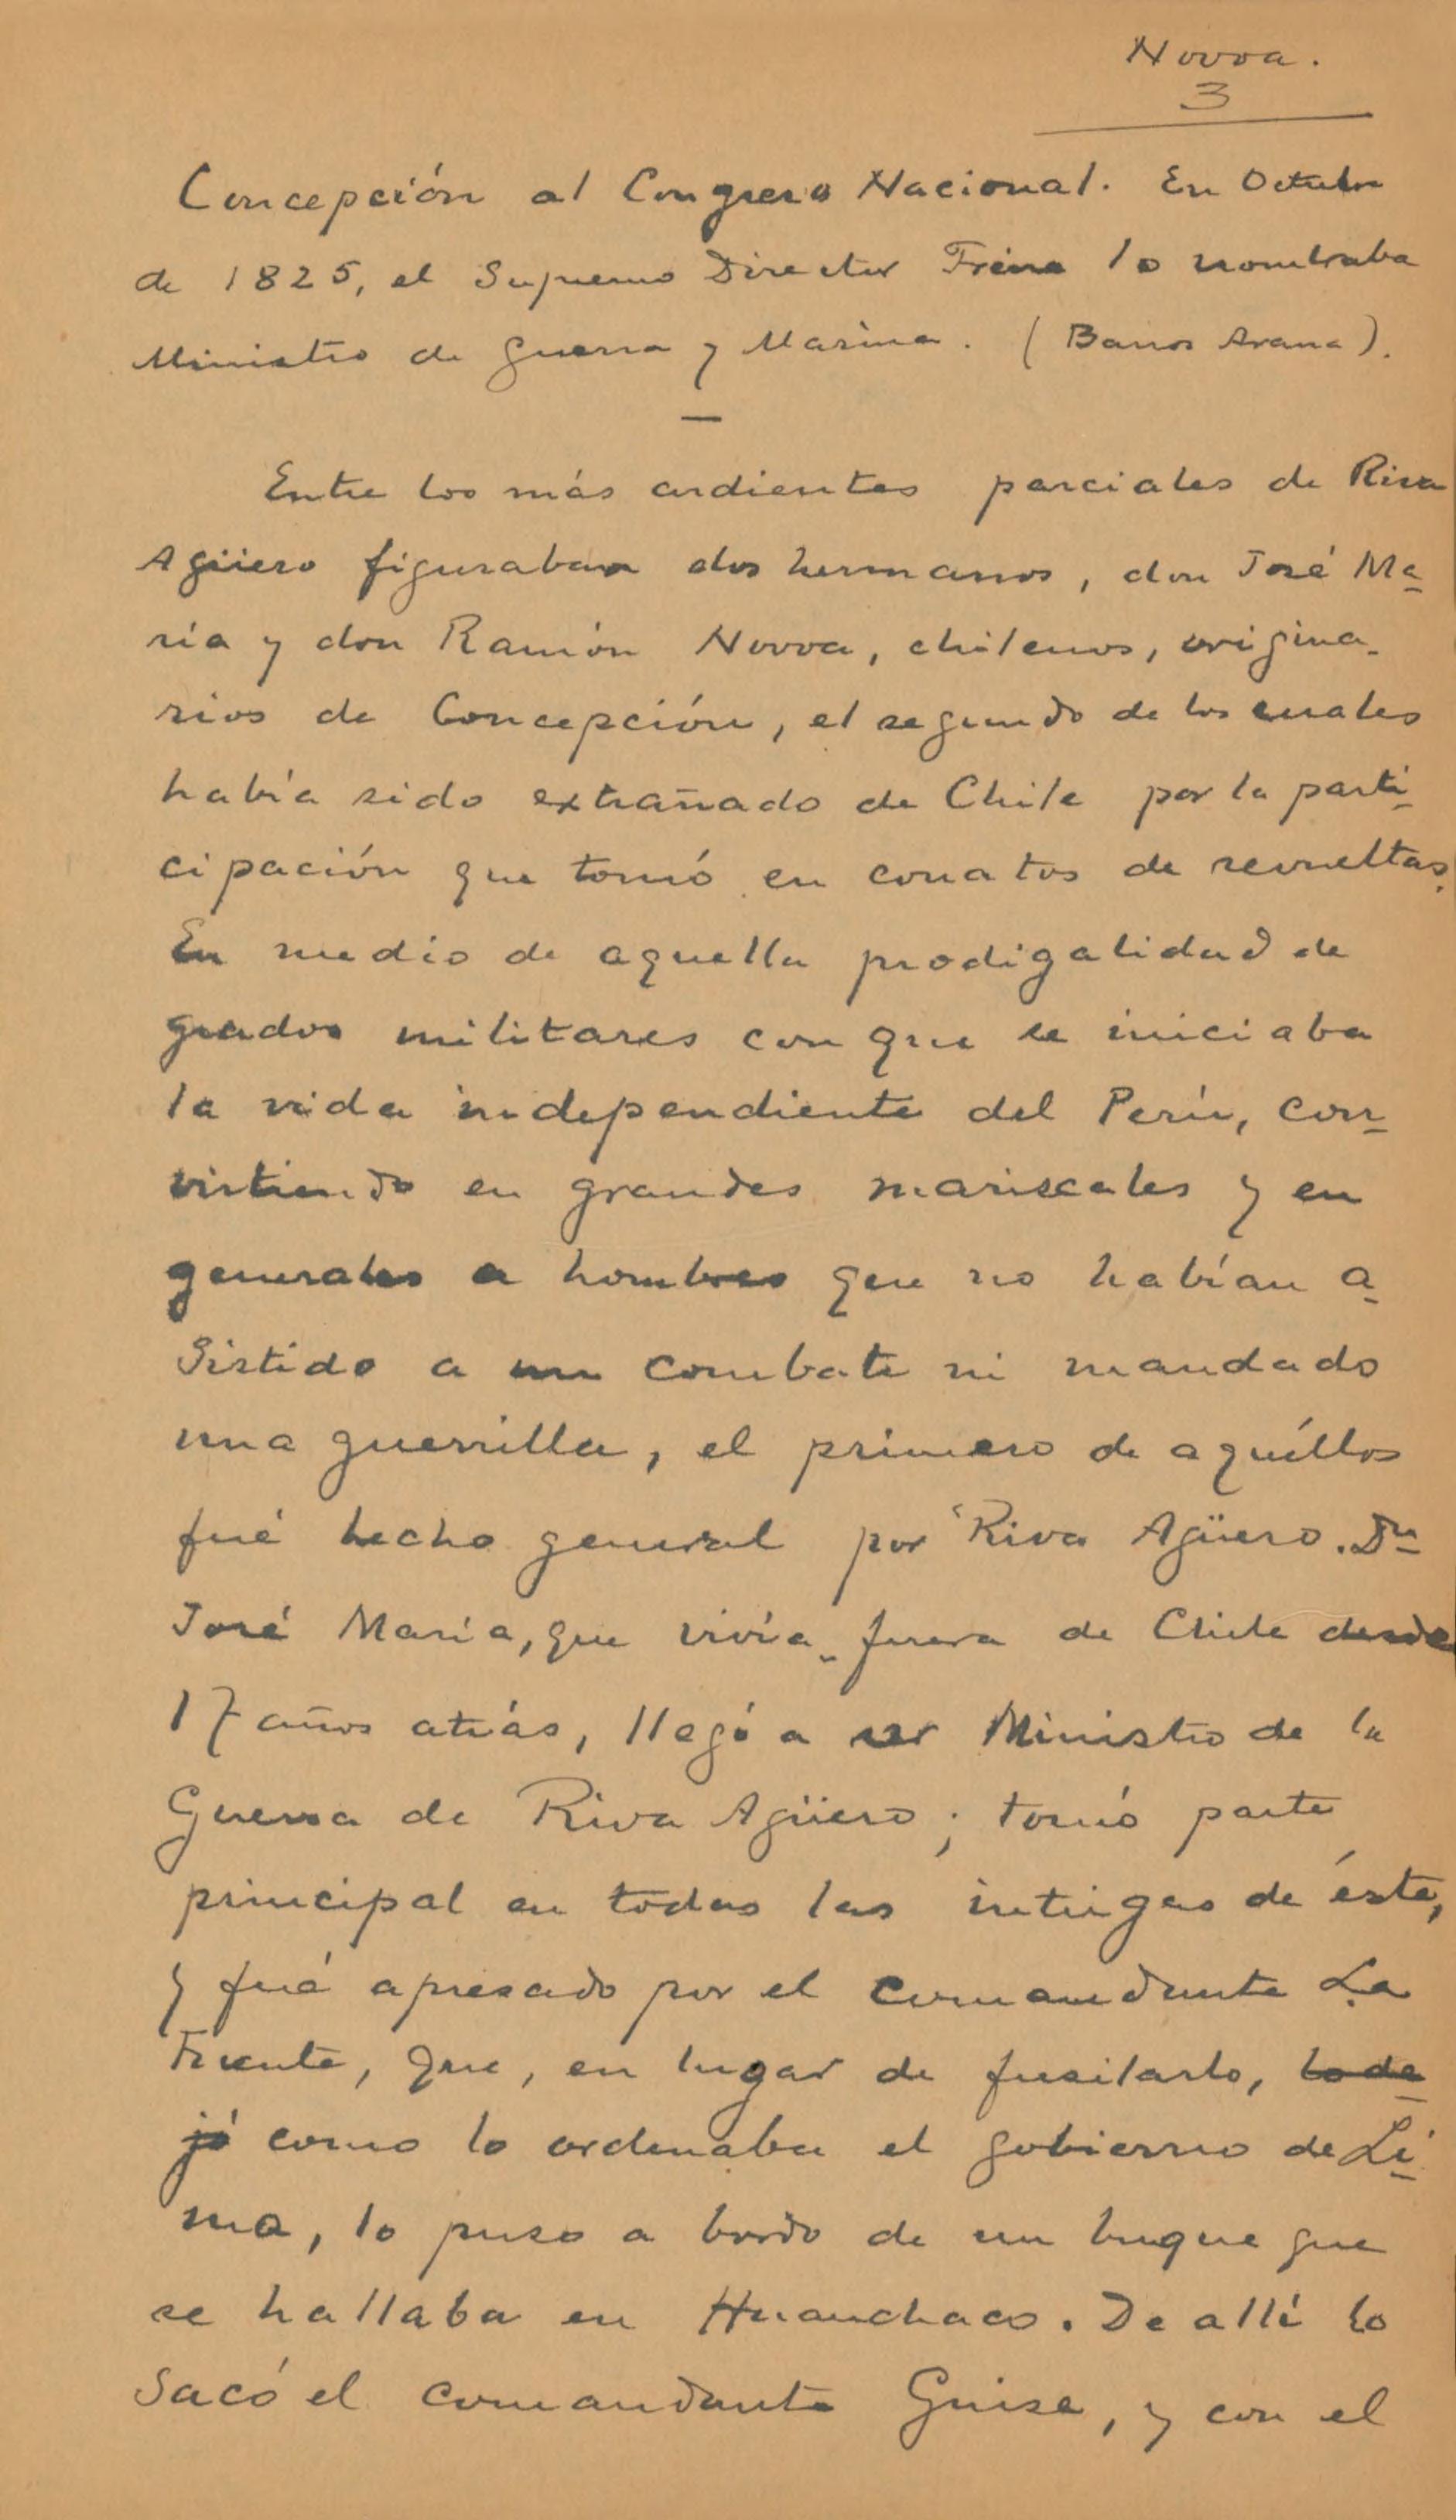 Novoa.
3
Concepción al Congreso Nacional. En Octubre
de 1825, el Supremo Director Freire lo nombraba
Ministro de Guerra y Marina. (Barros Arana).
—
Entre los más ardientes parciales de Riva
Agüero figuraban dos hermanos, don José Ma-
ría y don Ramón Novoa, chilenos, origina-
rios de Concepción, el segundo de los cuales
había sido extrañado de Chile por la parti-
cipación que tomó en conatos de revueltas.
En medio de aquella prodigalidad de
grados militares con que se iniciaba
la vida independiente del Perú, con-
virtiendo en grandes mariscales y en
generales a hombres que no habían a-
sistido a un combate ni mandado
una guerrilla, el primero de aquéllos
fué hecho general por Riva Agüero. Dn
José María, que vivía fuera de Chile desde
17 años atrás, llegó a ser Ministro de la
Guerra de Riva Agüero; tomó parte
principal en todas las intrigas de éste,
y fué apresado por el comandante La
Fuente, que, en lugar de fusilarlo, lo de-
jó como lo ordenaba el gobierno de Li-
ma, lo puso a bordo de un buque que
se hallaba en Huanchaco. De allí lo
sacó el comandante Guise, y con el